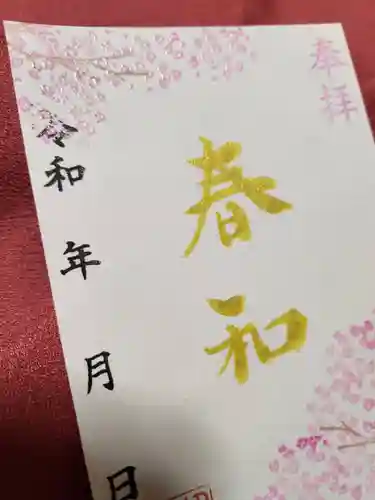 奉拝
春和
令和 年 月 日